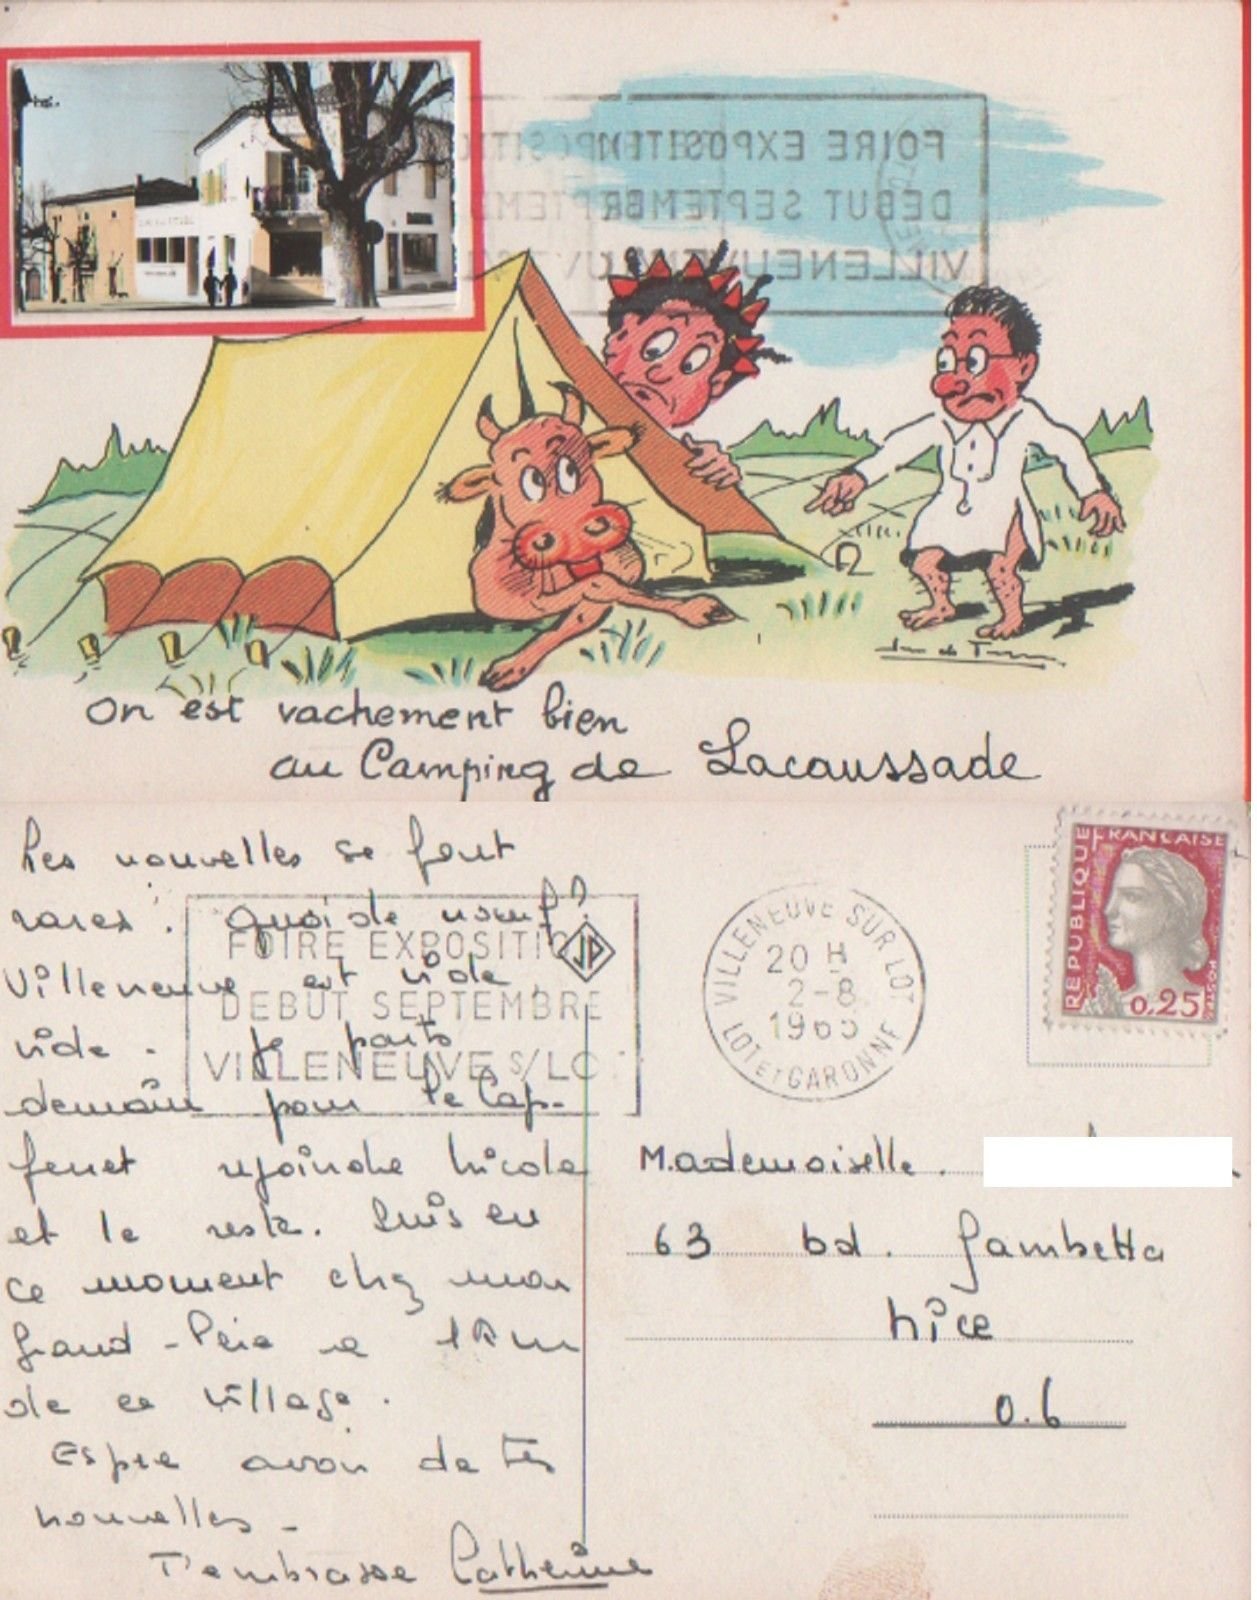 FOIRE EXPOSITION
DEBUT SEPTEMBRE
VILLENEUVE
On est vachement bien
au Camping de Lacaussade
Les nouvelles se font
rares. Quoi de neuf?
Villeneuve est vide,
vide - Je parts
demain pour le Cap-
ferret rejoindre Nicole
et le reste. Suis en
ce moment chez mon
Grand-Père a 1 Km
de ce village.
Espère avoir de tes
nouvelles -
T'embrasse Catherine
FOIRE EXPOSITIO
DEBUT SEPTEMBRE
VILLENEUVE S/LO
JP
VILLENEUVE SUR LOT
20 H
2-8
LOT ET GARONNE
REPUBLIQUE FRANCAISE
0,25
POSTES
Mademoiselle.
63 bd. Gambetta
Nice
0.6